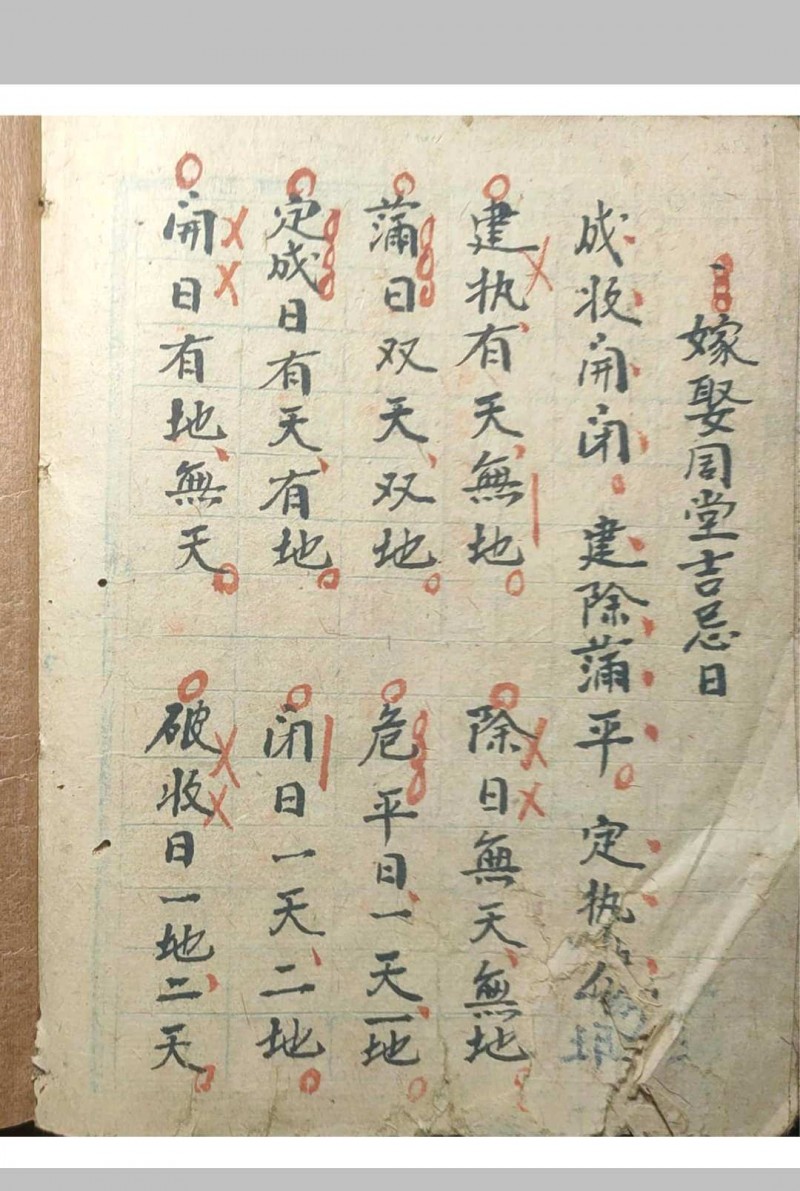 一嫁娶周堂吉忌日
成收開闭建除蒲平定执
建执有天無地
除日無天無地
蒲日双天双地
危平日一天一地
定成日有天有地
闭日一天二地
開日有地無天
破收日一地二天